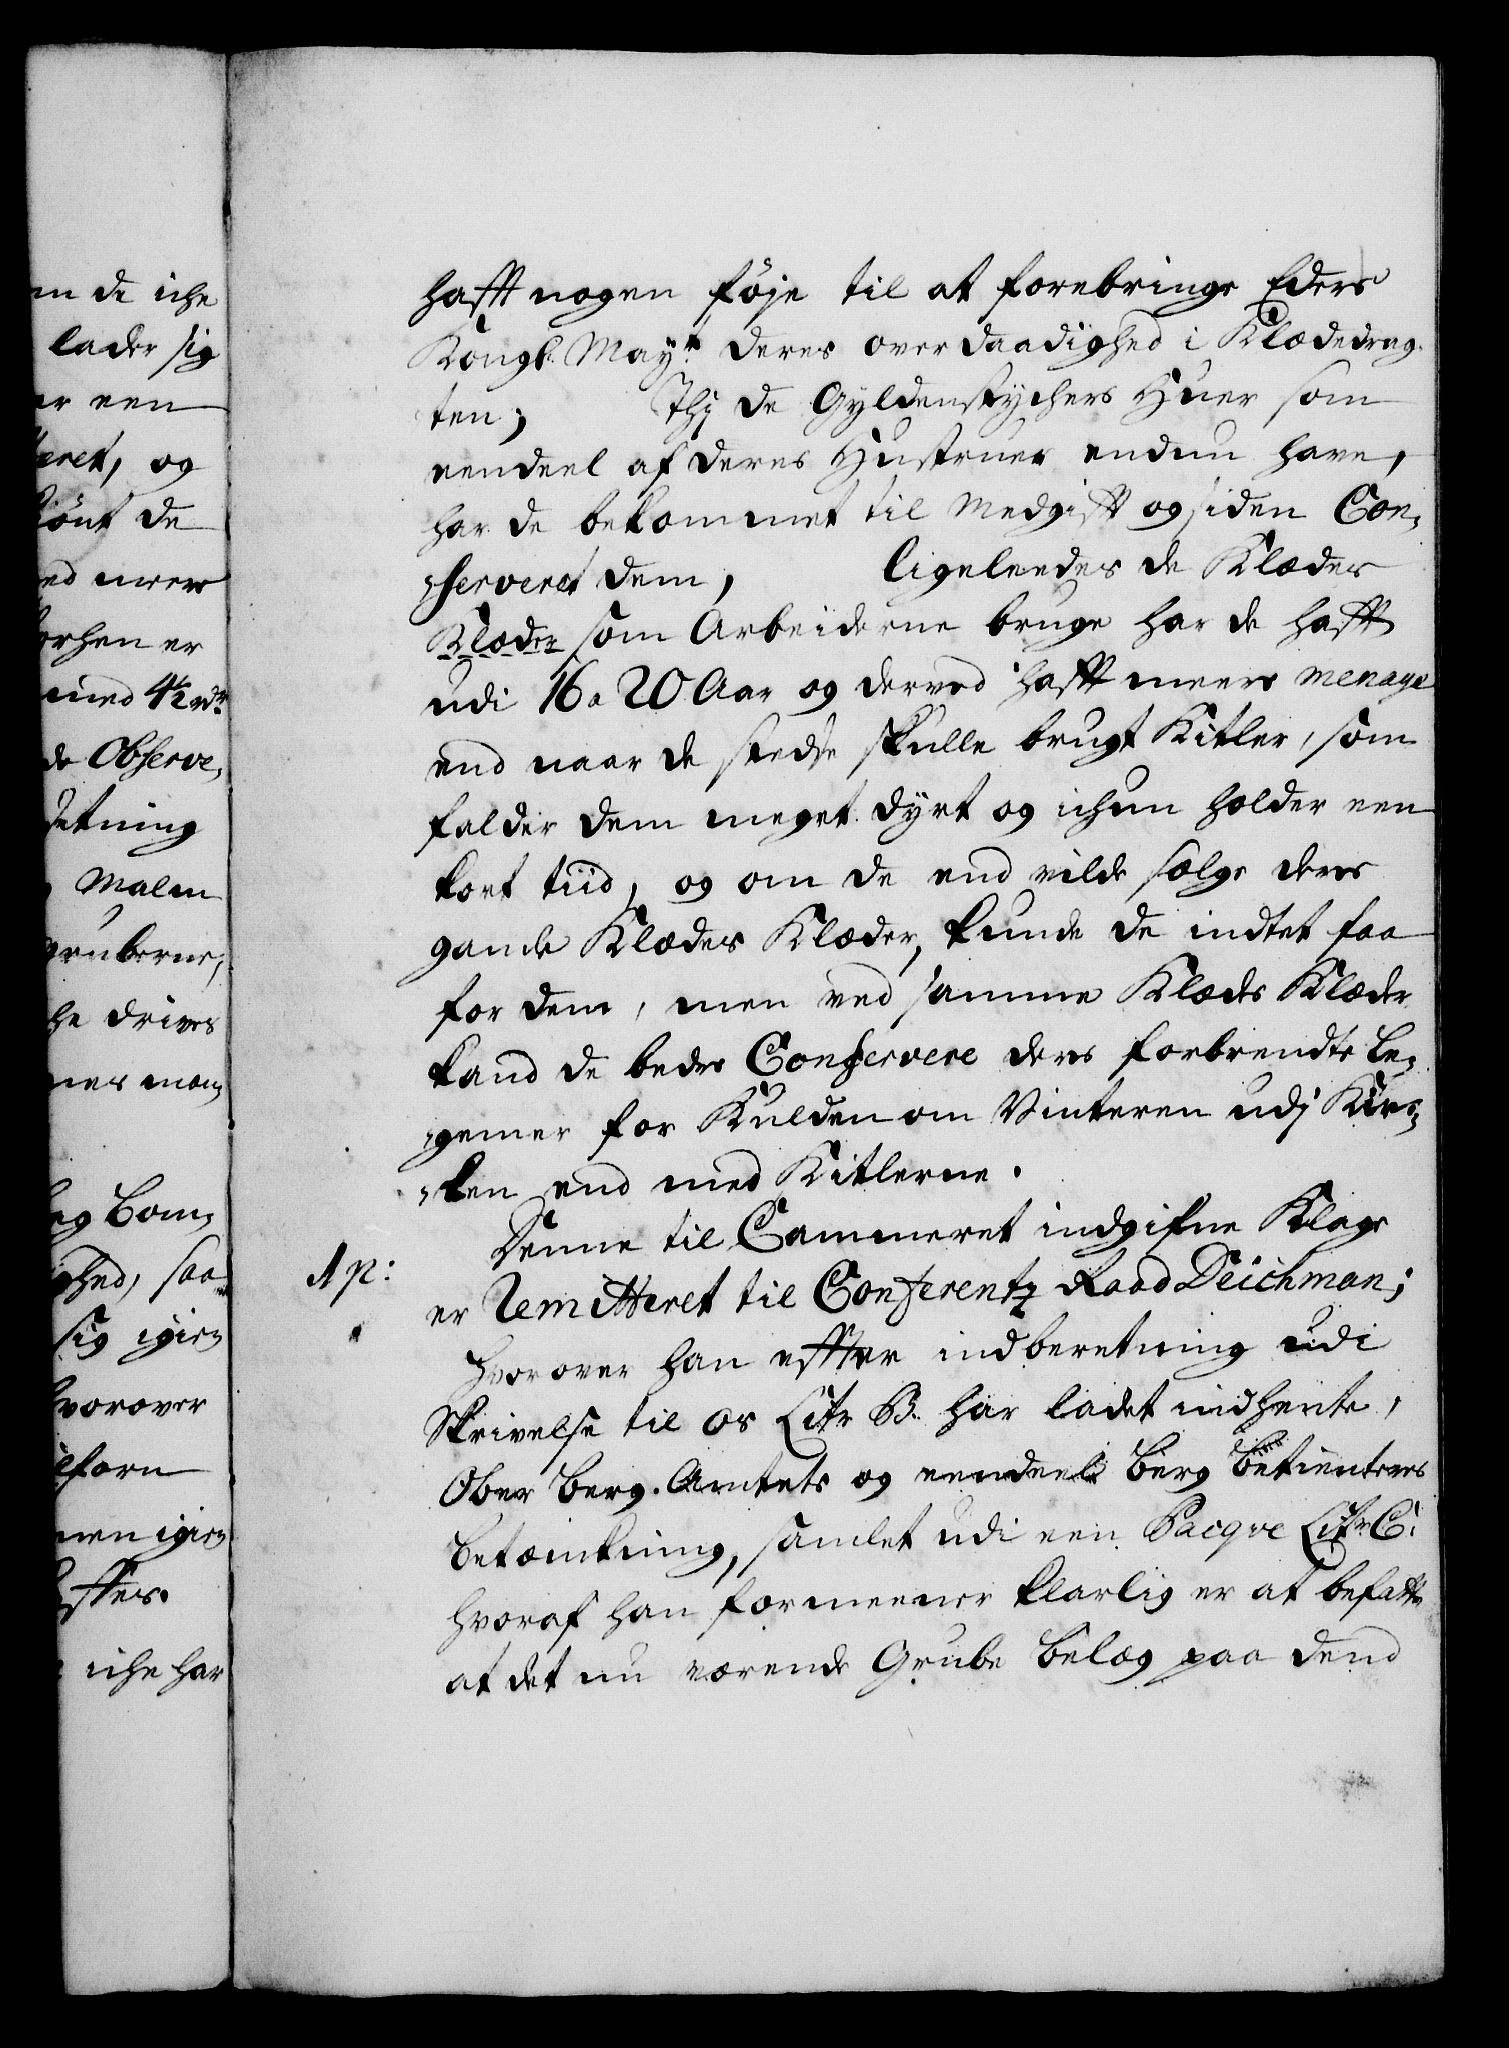 m de iche
lader sig
er een
teret, og
kiönt de
ed meere
forhen er
med 4½ rdr
de Observe,
setning
Malm
gruberne,
he drives
mes man,
og Bom,
ghed, saa
sig igien
hvorover
men igien
iche har
hafft nogen föje til at forebringe Eders
Kongl. Mayt. deres overdaadighed i Klædedrag-
ten; Thj de Gyldenstychers Huer som
eendeel af deres Hustruer endnu have,
har de bekommet til Medgifft og siden Con,
,serveret dem, ligeleedes de Klædes
Klæder som Arbeiderne bruge har de hafft
udi 16 a 20 Aar og derved hafft meere menage
end naar de stedse skulle brugt Kitler, som
falder dem meget dyrt og ichun holder een
kort tiid, og om de end vilde sælge deres
gamle Klædes Klæder, kunde de indtet faa
for dem, men ved samme Klædes Klæder
kand de bedre Conservere deres forbrendte Le,
,gemer for Kulden om Vinteren udj Kir,
,ken end med Kitlerne.
Denne til Cammeret indgifne Klage
Ap:
er Remitteret til Conferentz Raad Deichman;
hvorover han effter indberetning udi
Skrivelse til os Litr B. har ladet indhente,
Ober Berg-Amtets og eendeel Berg Betienteres
betænkning, samlet udi een Pacqve Litr C:
hvoraf han formeener klarlig er at befatte
at det nu værende Grube Belæg paa dend